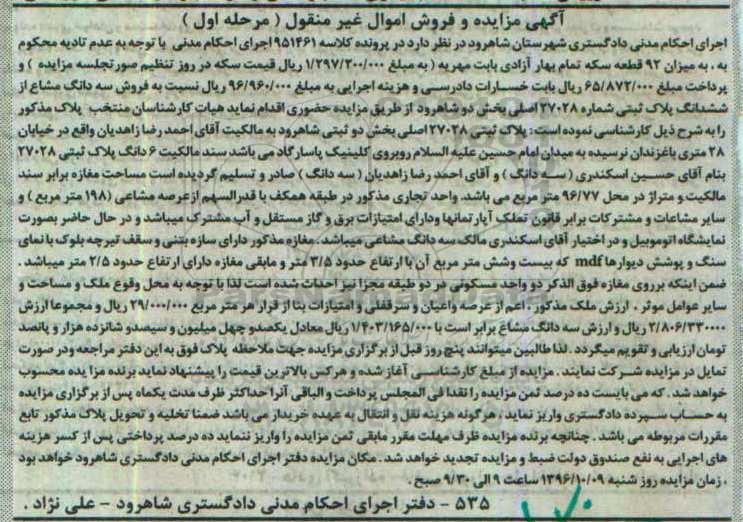 آگهی مزایده و فروش اموال غیر منقول ( مرحله اول )
اجرای احکام مدنی دادگستری شهرستان شاهرود در نظر دارد در پرونده کلاسه ۹۵۱۴۶۱ اجرای احکام مدنی با توجه به عدم تادیه محکوم
به ، به میزان ۹۲ قطعه سکه تمام بهار آزادی بابت مهریه ( به مبلغ ۱/۲۹۷/۲۰۰/۰۰۰ ریال قیمت سکه در روز تنظیم صورتجلسه مزایده ) و
پرداخت مبلغ ۶۵/۸۷۲/۰۰۰ ریال بابت خسارات دادرسی و هزینه اجرایی به مبلغ ۹۶/۹۶۰/۰۰۰ ریال نسبت به فروش سه دانگ مشاع از
ششدانگ پلاک ثبتی شماره ۲۷۰۲۸ اصلی بخش دو شاهرود از طریق مزایده حضوری اقدام نماید هیات کارشناسان منتخب پلاک مذکور
را به شرح ذیل کارشناسی نموده است : پلاک ثبتی ۲۷۰۲۸ اصلی بخش دو ثبتی شاهرود به مالکیت آقای احمد رضا زاهدیان واقع در خیابان
۲۸ متری باغزندان نرسیده به میدان امام حسین علیه السلام روبروی کلینیک پاسارگاد می باشد سند مالکیت ۶ دانگ پلاک ثبتی ۲۷۰۲۸
بنام آقای حسین اسکندری ( سه دانگ ) و آقای احمد رضا زاهدیان ( سه دانگ ) صادر و تسلیم گردیده است مساحت مغازه برابر سند
مالکیت و متراژ در محل ۹۶/۷۷ متر مربع می باشد. واحد تجاری مذکور در طبقه همکف با قدرالسهم از عرصه مشاعی (۱۹۸ متر مربع ) و
سایر مشاعات و مشترکات برابر قانون تملک آپارتمانها ودارای امتیازات برق و گاز مستقل و آب مشترک میباشد و در حال حاضر بصورت
نمایشگاه اتوموبیل و در اختیار آقای اسکندری مالک سه دانگ مشاعی میباشد . مغازه مذکور دارای سازه بتنی و سقف تیرچه بلوک با نمای
سنگ و پوشش دیوارها mdf که بیست وشش متر مربع آن با ارتفاع حدود ۳/۵ متر و مابقی مغازه دارای ارتفاع حدود ۲/۵ متر میباشد .
ضمن اینکه برروی مغازه فوق الذکر دو واحد مسکونی در دو طبقه مجزا نیز احداث شده است لذا با توجه به محل وقوع ملک و مساحت و
سایر عوامل موثر ، ارزش ملک مذکور ، اعم از عرصه واعیان و سرقفلی و امتیازات بنا از قرار هر متر مربع ۲۹/۰۰۰/۰۰۰ ریال و مجموعا ارزش
۲/۸۰۶/۳۳۰۰۰۰ ریال و ارزش سه دانگ مشاع برابر است با ۱/۴۰۳/۱۶۵/۰۰۰ ریال معادل یکصدو چهل میلیون و سیصدو شانزده هزار و پانصد
تومان ارزیابی و تقویم میگردد . لذا طالبین میتوانند پنج روز قبل از برگزاری مزایده جهت ملاحظه پلاک فوق به این دفتر مراجعه ودر صورت
تمایل در مزایده شرکت نمایند . مزایده از مبلغ کارشناسی آغاز شده و هرکس بالاترین قیمت را پیشنهاد نماید برنده مزایده محسوب
خواهد شد . که می بایست ده درصد ثمن مزایده را نقدا فی المجلس پرداخت و الباقی آنرا حداکثر ظرف مدت یکماه پس از برگزاری مزایده
به حساب سپرده دادگستری واریز نماید ، هرگونه هزینه نقل و انتقال به عهده خریدار می باشد ضمنا تخلیه و تحویل پلاک مذکور تابع
مقررات مربوطه می باشد . چنانچه برنده مزایده ظرف مهلت مقرر مابقی ثمن مزایده را واریز ننماید ده درصد پرداختی پس از کسر هزینه
های اجرایی به نفع صندوق دولت ضبط و مزایده تجدید خواهد شد . مکان مزایده دفتر اجرای احکام مدنی دادگستری شاهرود خواهد بود
، زمان مزایده روز شنبه ۱۳۹۶/۱۰/۰۹ ساعت ۹ الی ۹/۳۰ صبح .
۵۳۵ - دفتر اجرای احکام مدنی دادگستری شاهرود - علی نژاد .